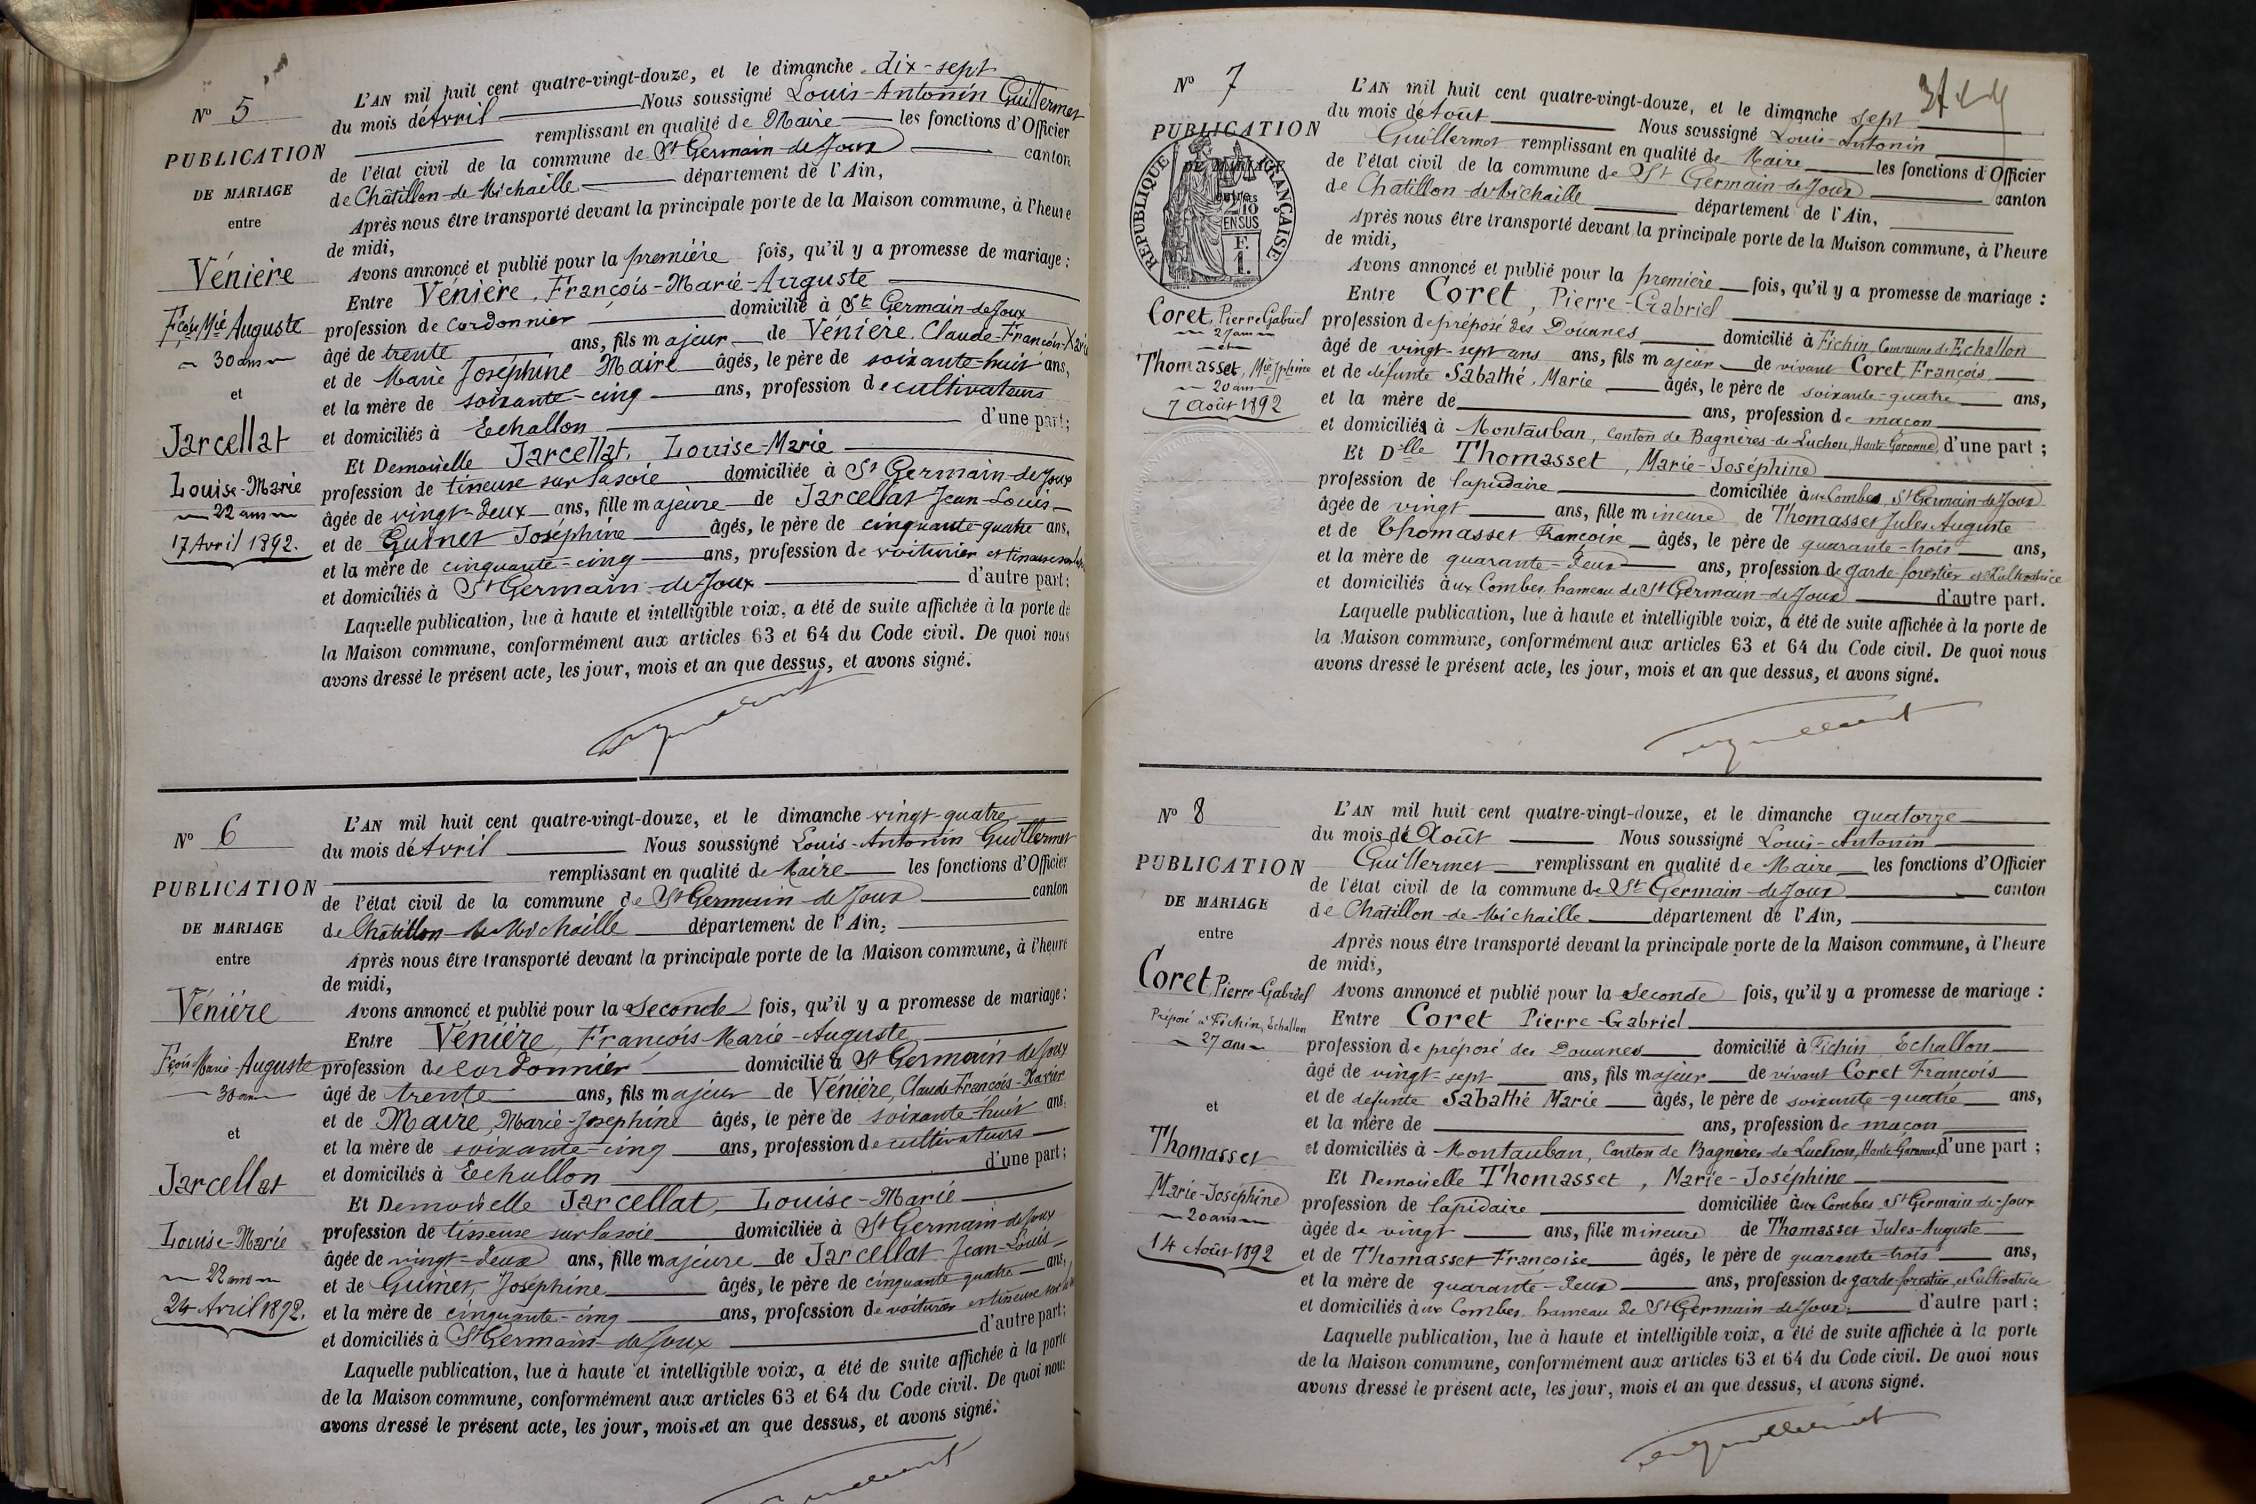 N° 5
PUBLICATION
DE MARIAGE
entre
Vénière
Fçois Mie Auguste
30 ans
et
Jarcellat
Louise-Marie
22 ans
17 Avril 1892.
L'AN mil huit cent quatre-vingt-douze, et le dimanche dix-sept
du mois de Avril Nous soussigné Louis-Antonin Guillermet
remplissant en qualité de Maire les fonctions d'Officier
de l'état civil de la commune de St Germain-de-Joux canton
de Châtillon-de-Michaille département de l'Ain,
Après nous être transporté devant la principale porte de la Maison commune, à l'heure
de midi,
Avons annoncé et publié pour la première fois, qu'il y a promesse de mariage :
Entre Vénière, François-Marie-Auguste
profession de cordonnier domicilié à St Germain-de-Joux
âgé de trente ans, fils majeur de Vénière, Claude-François-Xavier
et de Marie Joséphine Maire âgés, le père de soixante-huit ans,
et la mère de soixante-cinq ans, profession de cultivateurs
et domiciliés à Echallon d'une part;
Et Demoiselle Jarcellat, Louise-Marie
profession de tisseuse sur la soie domiciliée à St Germain-de-Joux
âgée de vingt-deux ans, fille majeure de Jarcellat Jean-Louis
et de Guinet Joséphine âgés, le père de cinquante-quatre ans,
et la mère de cinquante-cinq ans, profession de voiturier et tisseuse sur la
et domiciliés à St Germain-de-Joux d'autre part;
Laquelle publication, lue à haute et intelligible voix, a été de suite affichée à la porte de
la Maison commune, conformément aux articles 63 et 64 du Code civil. De quoi nous
avons dressé le présent acte, les jour, mois et an que dessus, et avons signé.
N° 6
PUBLICATION
DE MARIAGE
entre
Vénière
Fçois Marie-Auguste
30 ans
et
Jarcellat
Louise-Marie
22 ans
24 Avril 1892.
L'AN mil huit cent quatre-vingt-douze, et le dimanche vingt-quatre
du mois de Avril Nous soussigné Louis-Antonin Guillermet
remplissant en qualité de Maire les fonctions d'Officier
de l'état civil de la commune de St Germain-de-Joux canton
de Châtillon-de-Michaille département de l'Ain,
Après nous être transporté devant la principale porte de la Maison commune, à l'heure
de midi,
Avons annoncé et publié pour la Seconde fois, qu'il y a promesse de mariage :
Entre Vénière, François-Marie-Auguste
profession de cordonnier domicilié à St Germain-de-Joux
âgé de trente ans, fils majeur de Vénière, Claude-François-Xavier
et de Maire, Marie-Joséphine âgés, le père de soixante-huit ans,
et la mère de soixante-cinq ans, profession de cultivateurs
et domiciliés à Echallon d'une part;
Et Demoiselle Jarcellat, Louise-Marie
profession de tisseuse sur la soie domiciliée à St Germain-de-Joux
âgée de vingt-deux ans, fille majeure de Jarcellat Jean-Louis
et de Guinet, Joséphine âgés, le père de cinquante-quatre ans,
et la mère de cinquante-cinq ans, profession de voiturier et tisseuse sur la
et domiciliés à St Germain-de-Joux d'autre part;
Laquelle publication, lue à haute et intelligible voix, a été de suite affichée à la porte
de la Maison commune, conformément aux articles 63 et 64 du Code civil. De quoi nous
avons dressé le présent acte, les jour, mois et an que dessus, et avons signé.
N° 7
PUBLICATION
DE MARIAGE
entre
RÉPUBLIQUE FRANÇAISE
2/10
EN SUS
F.
1.
Coret, Pierre Gabriel
27 ans
et
Thomasset, Mie Jphine
20 ans
7 Août 1892
L'AN mil huit cent quatre-vingt-douze, et le dimanche sept
du mois de Août Nous soussigné Louis-Antonin
Guillermet remplissant en qualité de Maire les fonctions d'Officier
de l'état civil de la commune de St Germain-de-Joux canton
de Châtillon-de-Michaille département de l'Ain,
Après nous être transporté devant la principale porte de la Maison commune, à l'heure
de midi,
Avons annoncé et publié pour la première fois, qu'il y a promesse de mariage :
Entre Coret, Pierre-Gabriel
profession de préposé des Douanes domicilié à Fichin, Commune de Echallon
âgé de vingt-sept ans ans, fils majeur de vivant Coret, François
et de défunte Sabathé, Marie âgés, le père de soixante-quatre ans,
et la mère de ans, profession de maçon
et domiciliés à Montauban, Canton de Bagnères-de-Luchon, Haute-Garonne, d'une part ;
Et Dlle Thomasset, Marie-Joséphine
profession de lapidaire domiciliée à ux Combes, St Germain-de-Joux
âgée de vingt ans, fille mineure de Thomasset Jules-Auguste
et de Thomasset Françoise âgés, le père de quarante-trois ans,
et la mère de quarante-deux ans, profession de garde-forestier et Cultivatrice
et domiciliés à ux Combes, hameau de St Germain-de-Joux d'autre part.
Laquelle publication, lue à haute et intelligible voix, a été de suite affichée à la porte de
la Maison commune, conformément aux articles 63 et 64 du Code civil. De quoi nous
avons dressé le présent acte, les jour, mois et an que dessus, et avons signé.
N° 8
PUBLICATION
DE MARIAGE
entre
Coret, Pierre-Gabriel
Préposé à Fichin, Echallon
27 ans
et
Thomasset
Marie-Joséphine
20 ans
14 Août 1892
L'AN mil huit cent quatre-vingt-douze, et le dimanche quatorze
du mois de Août Nous soussigné Louis-Antonin
Guillermet remplissant en qualité de Maire les fonctions d'Officier
de l'état civil de la commune de St Germain-de-Joux canton
de Châtillon-de-Michaille département de l'Ain,
Après nous être transporté devant la principale porte de la Maison commune, à l'heure
de midi,
Avons annoncé et publié pour la Seconde fois, qu'il y a promesse de mariage :
Entre Coret Pierre-Gabriel
profession de préposé des Douanes domicilié à Fichin, Echallon
âgé de vingt-sept ans, fils majeur de vivant Coret François
et de défunte Sabathé Marie âgés, le père de soixante-quatre ans,
et la mère de ans, profession de maçon
et domiciliés à Montauban, Canton de Bagnères-de-Luchon, Haute Garonne, d'une part ;
Et Demoiselle Thomasset, Marie-Joséphine
profession de lapidaire domiciliée à ux Combes, St Germain-de-Joux
âgée de vingt ans, fille mineure de Thomasset Jules-Auguste
et de Thomasset Françoise âgés, le père de quarante-trois ans,
et la mère de quarante-deux ans, profession de garde-forestier et Cultivatrice
et domiciliés à ux Combes, hameau de St Germain-de-Joux, d'autre part ;
Laquelle publication, lue à haute et intelligible voix, a été de suite affichée à la porte
de la Maison commune, conformément aux articles 63 et 64 du Code civil. De quoi nous
avons dressé le présent acte, les jour, mois et an que dessus, et avons signé.